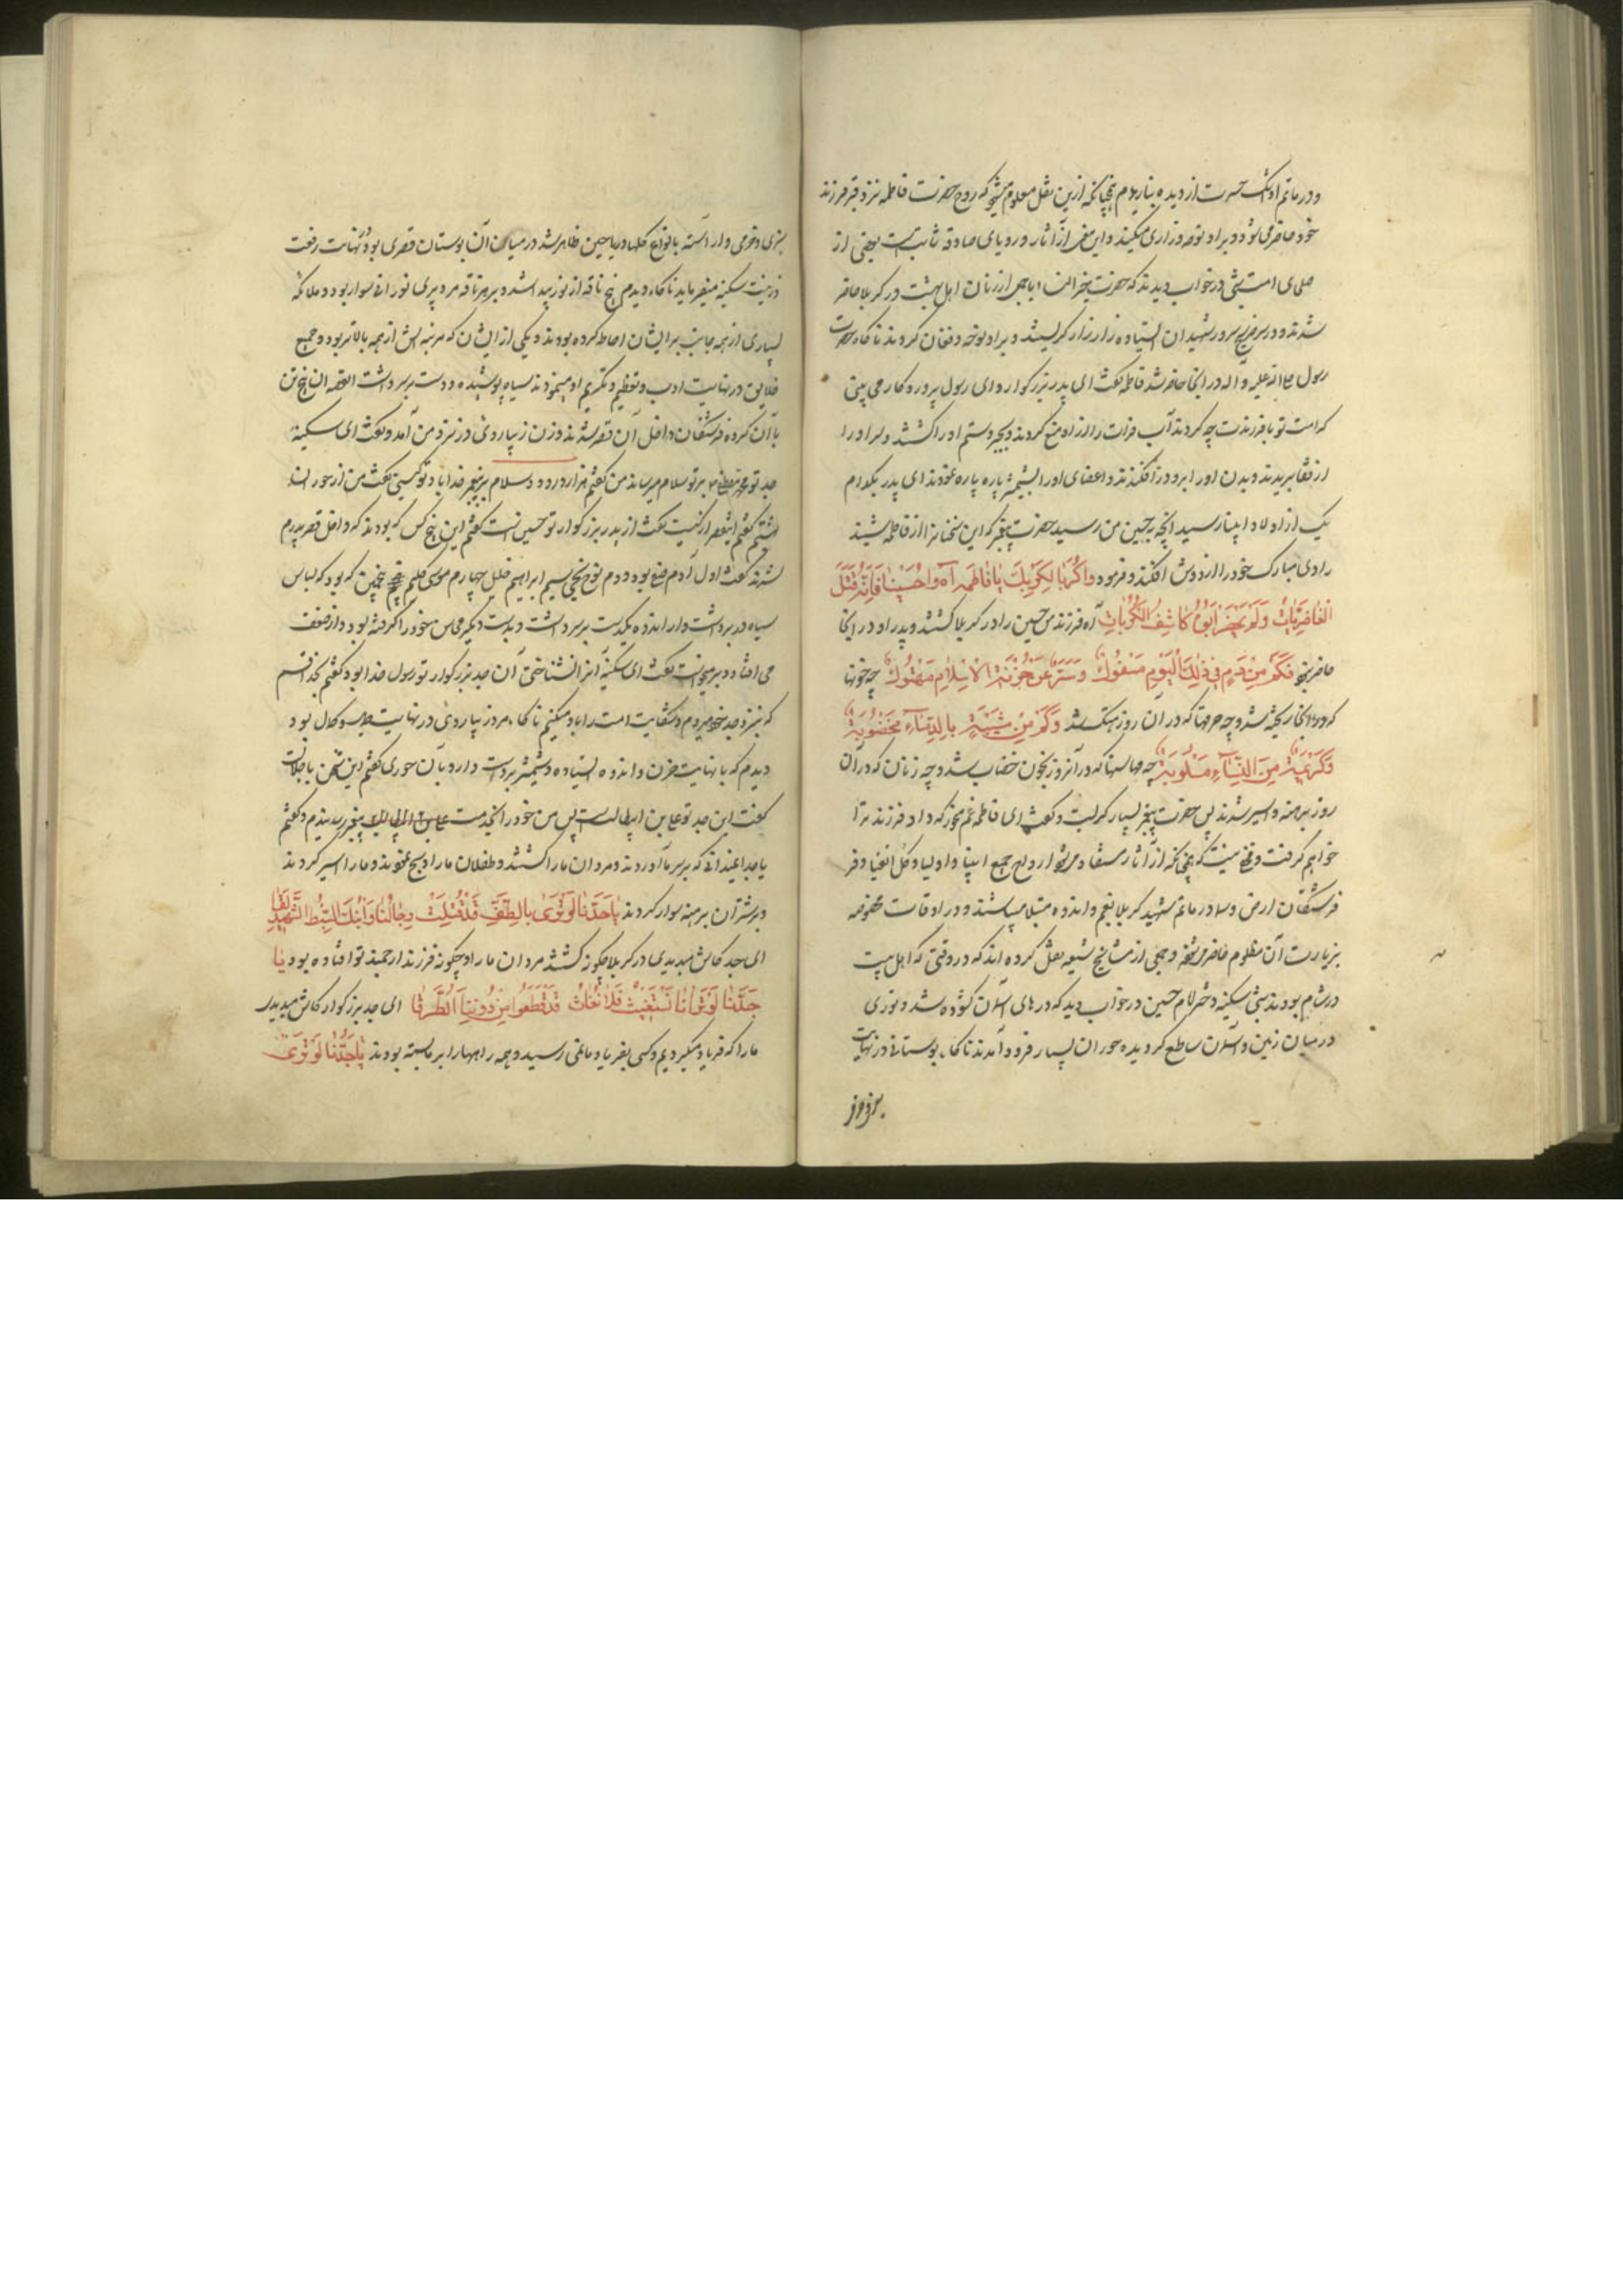 و در ماتم او اشک حسرت از دیده ببارید م چنانکه ازین نقل معلوم میشود که روح حضرت فاطمه نزد قبر فرزند
خود حاضر می شود و بر او نوحه و زاری میکند و این معنی از آثار و رویای صادقه ثابت است بعضی از
صلحای امت شبی در خواب دیدند که حضرت خیر النسا با جمعی از زنان اهل بهشت در کربلا حاضر
شدند و در سر ضریح سرور شهیدان ایستاده زار زار گریستند و بر او نوحه و فغان کردند ناکاه حضرت
رسول صلی الله علیه و آله در آنجا حاضر شد فاطمه گفت ای پدر بزرگوار و ای رسول پروردگار می بینی
که امت تو با فرزندت چه کردند آب فرات را از او منع کردند و بجور و ستم او را کشتند و سر او را
از قفا بریدند و بدن او را بر او در افکندند و اعضای او را بشمشیر پاره پاره نمودند ای پدر بکدام
یک از اولاد انبیا رسید آنچه بر حسین من رسید حضرت پیغمبر که این سخنان را از فاطمه شنید
ردای مبارک خود را از دوش افکند و فرمود واکربا لکربک یا فاطمه آه واحسینا فانه قتل
الغاضریات ولم یحضر ابوه کاشف الکربات آه فرزندم حسین را در کربلا کشتند و پدر او در آنجا
حاضر نبود فکم من دم فی ذلک الیوم مسفوک وستر عن حرمة الاسلام مهتوک چه خونها
که در آنجا ریخته شد و چه حرمتها که در آن روز هتک شد وکم من شیبة بالدماء مخضوبة
وکریمة من النساء مسلوبة چه محاسنها که در آنروز بخون خضاب شد و چه زنان که در آن
روز برهنه و اسیر شدند پس حضرت پیغمبر بسیار گریست و گفت ای فاطمه غم مخور که داد فرزند ترا
خواهم گرفت و مخفی نیست که چنانکه از آثار مستفاد می شود ارواح جمیع انبیا و اولیا و کل اتقیا و
فرشتگان ارض و سما در ماتم شهید کربلا بغم و اندوه مبتلا میباشند و در اوقات مخصوصه
بزیارت آن مظلوم حاضر میشوند و جمعی از مشایخ شیعه نقل کرده اند که در وقتی که اهل بیت
در شام بودند شبی سکینه دختر امام حسین در خواب دید که درهای آسمان کشوده شد و نوری
در میان زمین و آسمان ساطع گردیده حوران بسیار فرود آمدند ناکاه بوستانی در نهایت
سبزی و خرمی و آراسته بانواع کلها و ریاحین ظاهر شد در میان آن بوستان قصری بود در نهایت رفعت
و زینت سکینه میفرماید ناکاه دیدم پنج ناقه از نور پیدا شد و بر هر ناقه مرد پیری نورانی سوار بود و ملائکه
بسیاری از همه جانب بر ایشان احاطه کرده بودند و یکی از ایشان که مرتبه اش از همه بالاتر بود و جمیع
خلایق در نهایت ادب و تعظیم و تکریم او مینمودند سیاه پوشیده و دست بر سر داشت القصه آن پنج تن
با آن کروه فرشتگان داخل آن قصر شدند و زن زیبا روئی در نزد من آمد و گفت ای سکینه
جد تو محمد مصطفی بر تو سلام میرساند من گفتم هزار درود و سلام بر پیغمبر خدا باد تو کیستی گفت من از حوریان
بهشتم گفتم این قصر از کیست گفت از پدر بزرگوار تو حسین است گفتم این پنج کس که بودند که داخل قصر پدرم
شدند گفت اول آدم صفی بود و دوم نوح نجی سیم ابراهیم خلیل چهارم موسی کلیم گفتم پنجمین که بود که لباس
سیاه در بر داشت و از اندوه یکدست بر سر داشت و بدست دیگر محاسن خود را گرفته بود و از ضعف
می افتاد و بر میخواست گفت ای سکینه او را نشناختی آن جد بزرگوار تو رسول خدا بود گفتم بخدا قسم
که نزد جد خود میروم و شکایت امت را باو میکنم ناکاه مرد زیبا روئی در نهایت حسن و کمال بود
دیدم که با نهایت حزن و اندوه ایستاده و شمشیر بر دست دارد بآن حوری گفتم این شخص با جلالت
گفت این جد تو علی بن ابیطالب است پس من خود را بخدمت پیغمبر رسانیدم و گفتم
یا جدا نمیدانی که بر سر ما آوردند و مردان ما را کشتند و طفلان ما را ذبح نمودند و ما را اسیر کردند
و بر شتران برهنه سوار کردند یا جدنا لو تری بالطف قد قتلت رجالنا وابنک السبط الشهید لقا
ای جد کاش میدیدی در کربلا چگونه کشتند مردان ما را و چگونه فرزند ارجمند تو افتاده بود یا
جدنا لو ترانا نستغیث فلا نغاث قد قطعوا من دوننا الطرقا ای جد بزرگوار کاش میدیدی
ما را که فریاد میکردیم و کسی بفریاد ما نمی رسید و همه راهها را بر ما بسته بودند یا جدنا لو تری